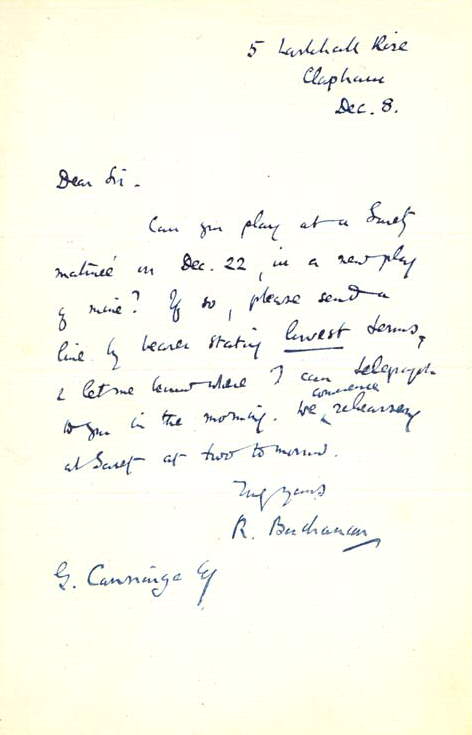 5 Larkhall Rise
Clapham
Dec. 8.
Dear Sir -
Can you play at a
matineé on Dec. 22, in a new play
of mine? If so, please send a
line by bearer stating lowest terms,
& let me know where I can telegraph
to you in the morning. We commence rehearsing
at at two tomorrow.
yours
R. Buchanan
G. Canninge Esq